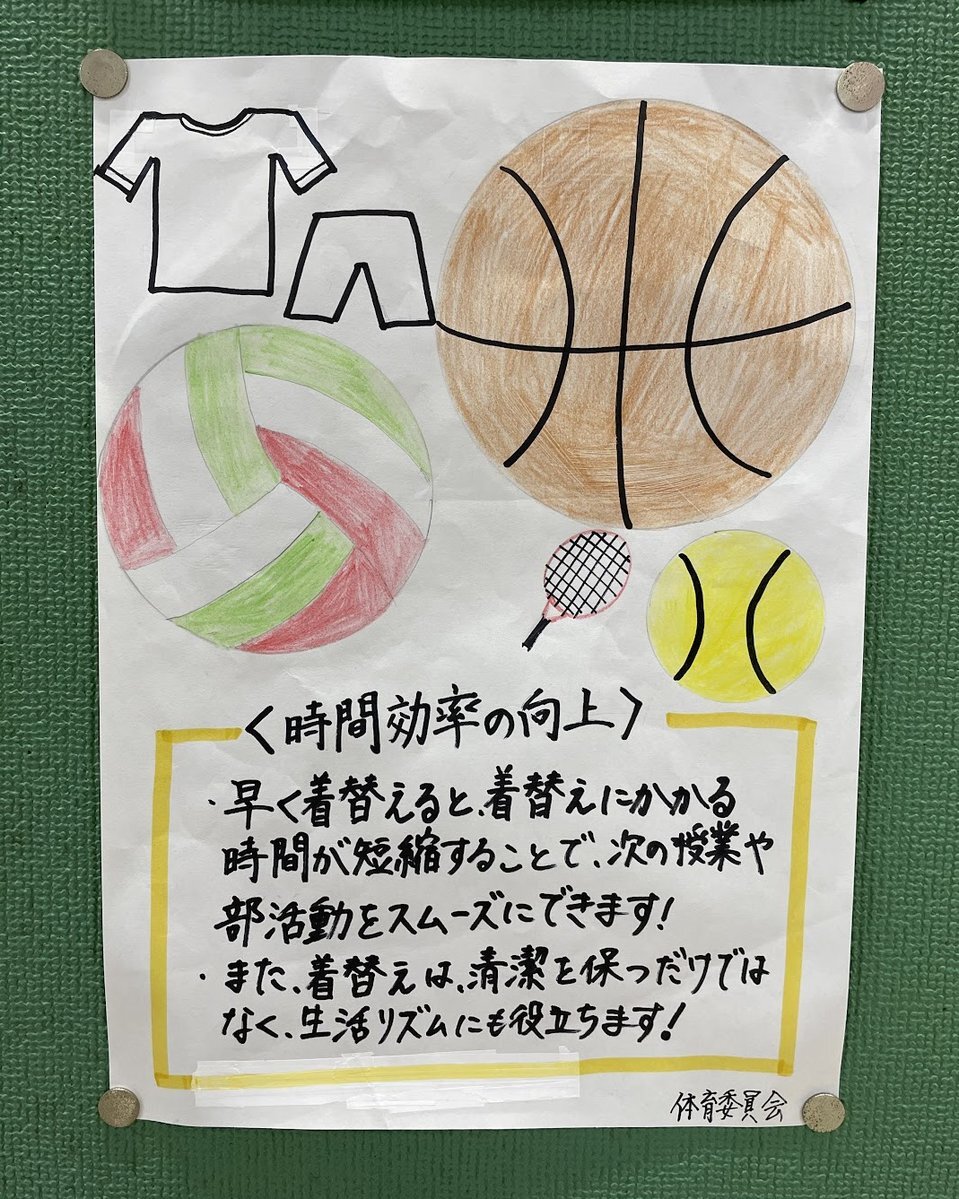 〈時間効率の向上〉
・早く着替えると、着替えにかかる
時間が短縮することで、次の授業や
部活動をスムーズにできます!
・また、着替えは、清潔を保つだけでは
なく、生活リズムにも役立ちます!
体育委員会